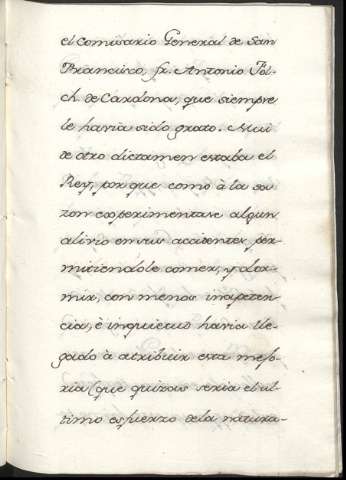 el comisario General de San
Francisco, fr. Antonio Fol-
ch. de Cardona, que siempre
le havia sido grato. Mui
de otro dictamen estaba el
Rey, por que como à la sa-
zon experimentase algun
alivio en sus accidentes, per-
mitiendole comer, y dor-
mir, con menos inapeten-
cia, è inquietud havia lle-
gado à atribuir esta mejo-
ria (que quizas seria el ul-
timo esfuerzo de la natura-